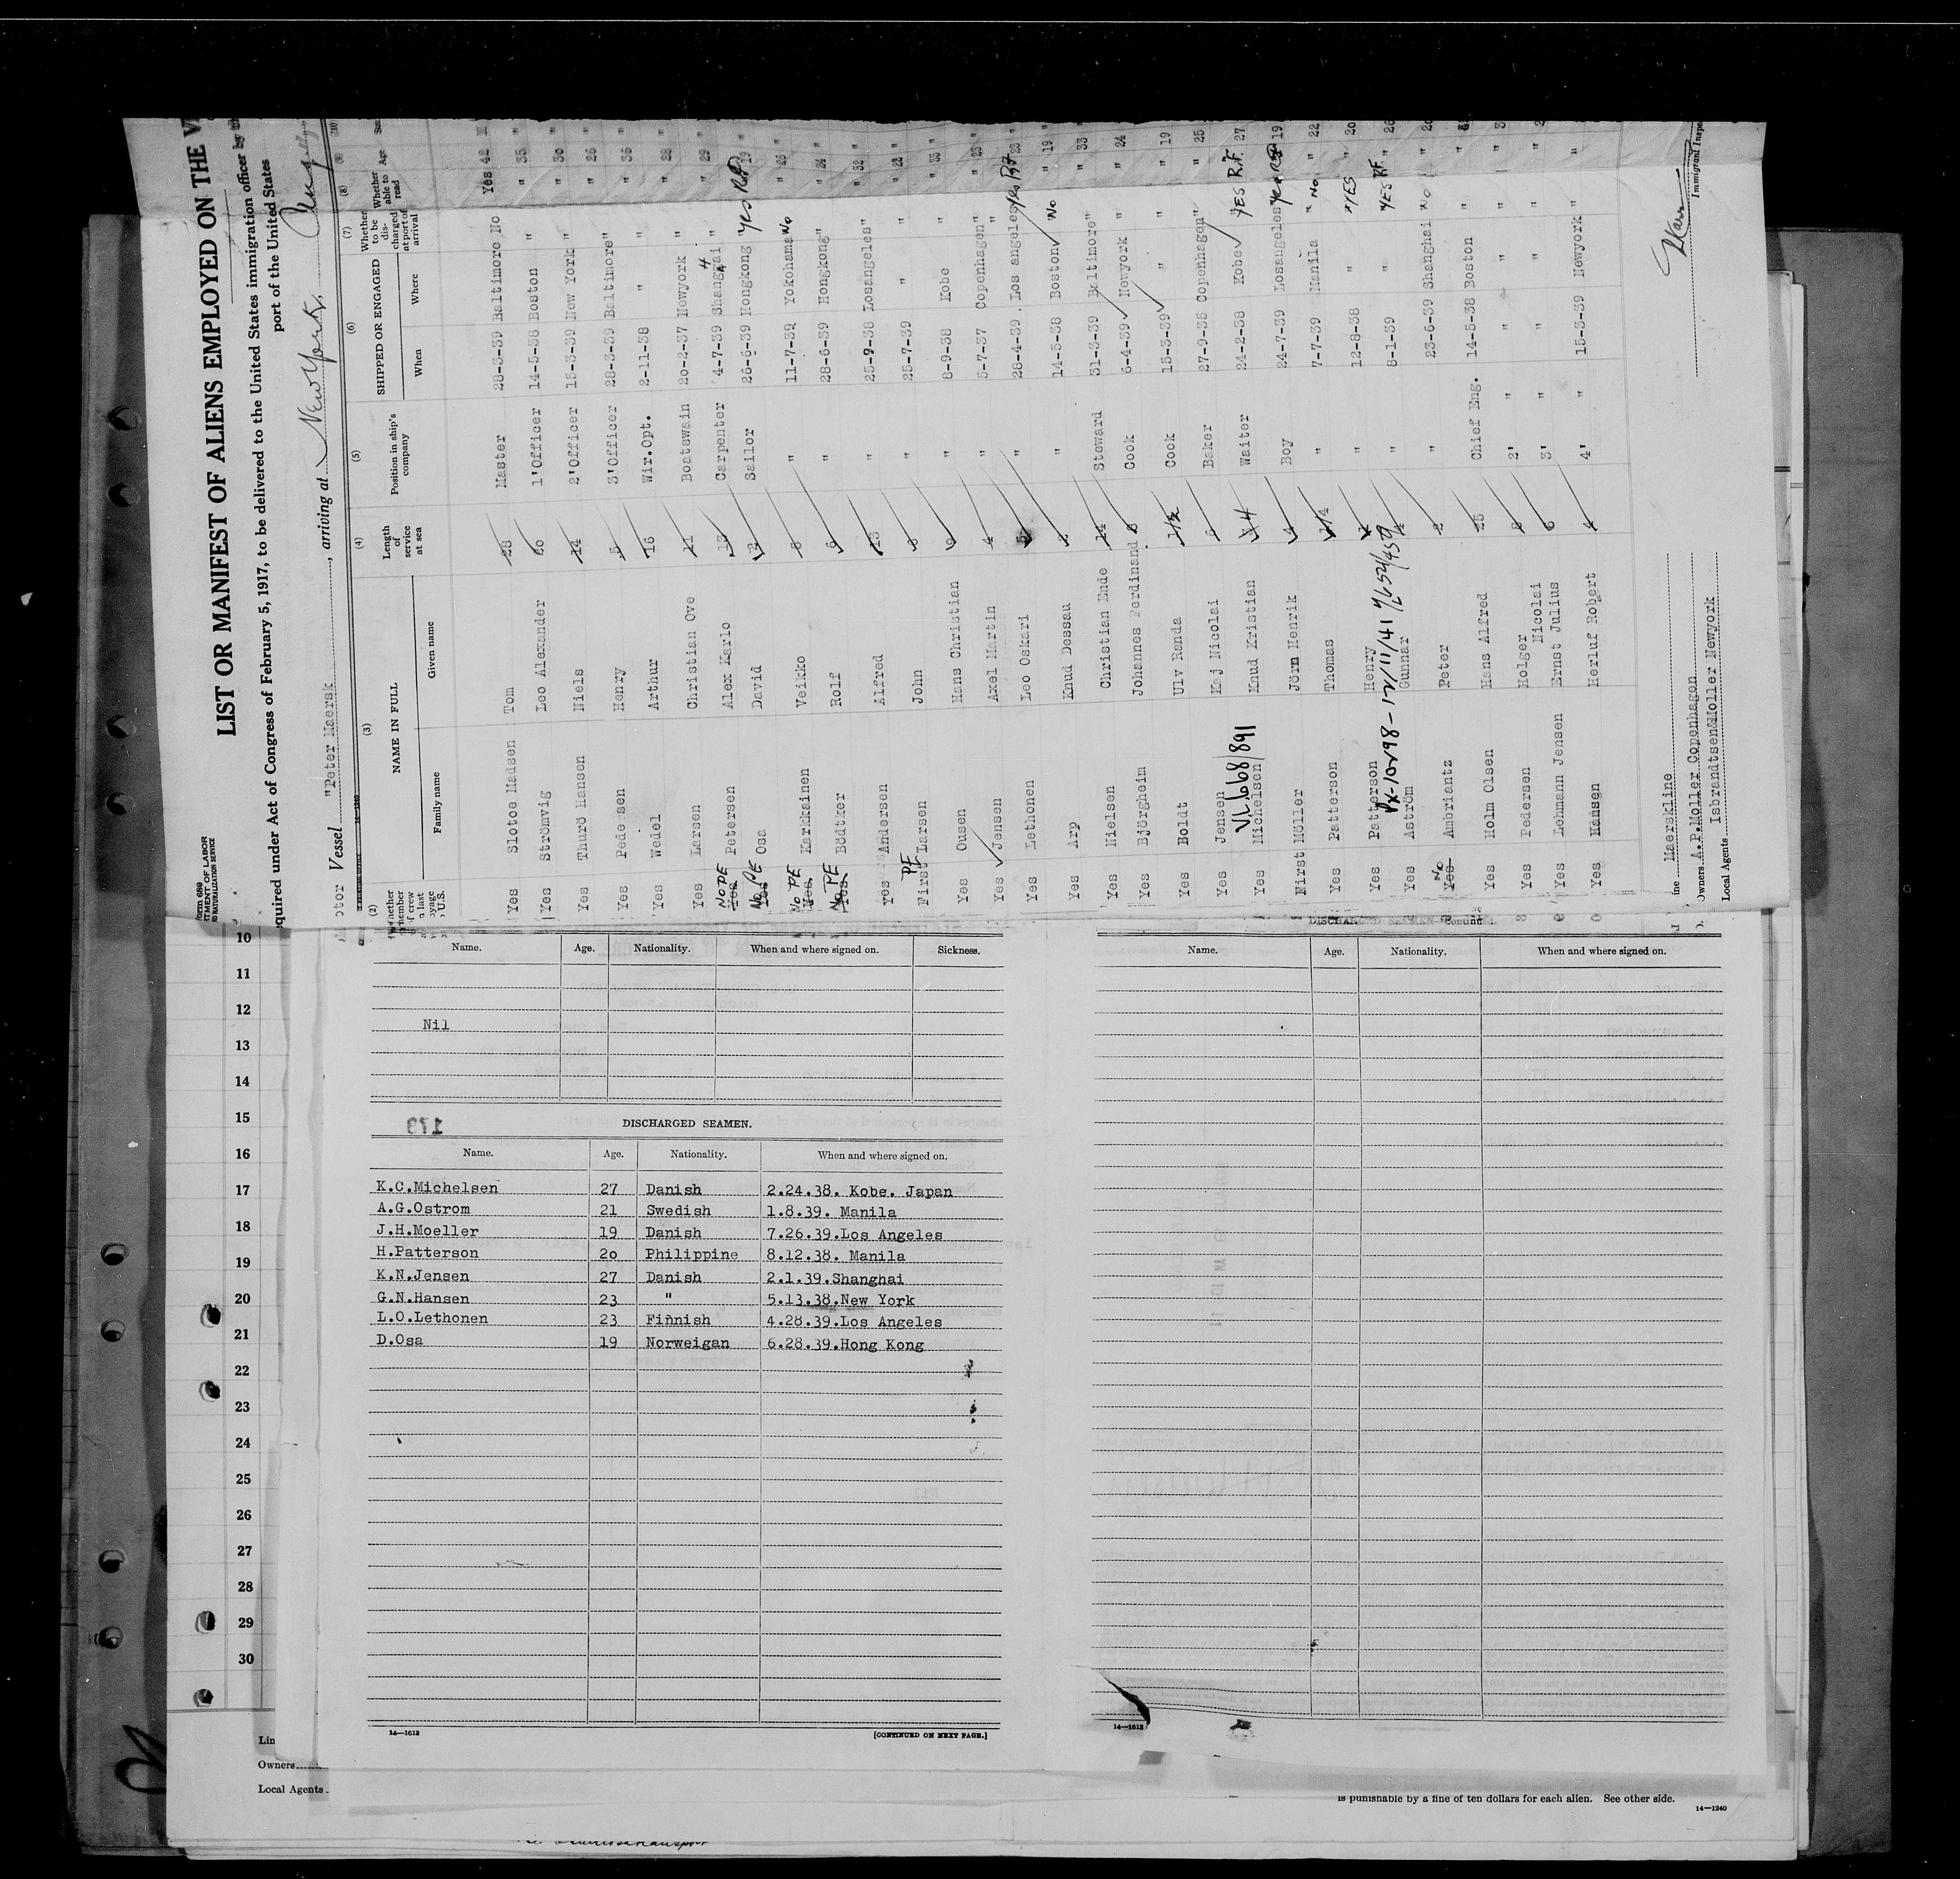 LIST OR MANIFEST OF ALIENS EMPLOYED ON THE
equired under Act of Congress of February 5, 1917, to be delivered to the United States immigration officer by th
port of the United States
Vessel "Peter Maersk, arriving at New York,
(2) (3) (4) (5) (6) (7) (8)
NAME IN FULL
Family name Given name
Length of service at sea
Position in ship's company
SHIPPED OR ENGAGED
When Where
Whether to be discharged at port of arrival
Whether able to read
Age
Yes Slotoe Madsen Tom 28 Master 28-3-39 Baltimore No Yes 42
Yes Strömvig Leo Alexander 20 1'Officer 14-5-38 Boston " " 35 "
Yes Thurö Hansen Niels 14 2'Officer 15-3-39 New York " " 30 "
Yes Pedersen Henry 5 3'Officer 28-3-39 Baltimore " " 26 "
Yes Wedel Arthur 16 Wir.Opt. 2-11-38 " " " 36 "
Yes Larsen Christian Ove 11 Boatswain 20-2-37 Newyork " " 28 "
No PE Yes Petersen Alex Karlo 13 Carpenter 4-7-39 Shanghai " " 29 "
No PE Yes Osa David 2 Sailor 26-6-39 Hongkong Yes 19 "
No PE Yes Karkkainen Veikko 8 " 11-7-39 Yokohama No " 26 "
No PE Yes Bödtker Rolf 6 " 28-6-39 Hongkong " " 24 "
Yes Andersen Alfred 13 " 25-9-38 Losangeles " " 32 "
First PE Larsen John 8 " 25-7-39 " " "
Yes Ousen Hans Christian " 8-9-38 Kobe " "
Yes Jensen Axel Martin 4 " 5-7-37 Copenhagen " "
Yes Lethonen Leo Oskari " 28-4-39 Los angeles Yes 23 "
Yes Arp Knud Dessau " 14-5-38 Boston No " 19 "
Yes Nielsen Christian Ende 14 Steward 31-3-39 Baltimore " " 33
Yes Björgheim Johannes Ferdinand Cook 6-4-39 Newyork " " 24
Yes Boldt Ulv Randa 1½ Cook 15-3-39 " " " 19
Yes Jensen Kaj Nicolai 6 Baker 27-9-35 Copenhagen " " 25
VL 668/891
Yes Michelsen Knud Kristian 4 Waiter 24-2-38 Kobe YES R.F. 27
First Möller Jörn Henrik 4 Boy 24-7-39 Losangeles Yes 19
Yes Patterson Thomas " 7-7-39 Manila " No " 22
Yes Patterson Henry " 12-8-38 " YES " 20
Yes Aström Gunnar " 8-1-39 " YES R.F. " 26
No Yes Ambriantz Peter 2 " 23-6-39 Shanghai No " 20
Yes Holm Olsen Hans Alfred 25 Chief Eng. 14-5-38 Boston "
Yes Pedersen Holger Nicolai 8 2' " " " "
Yes Lehmann Jensen Ernst Julius 6 3' " " "
Yes Hansen Herluf Robert 4 4' " 15-3-39 Newyork " "
Maerskline
Owners A.P.Moller Copenhagen
Local Agents Isbrandtsen&Moller Newyork
Immigrant Inspe
10
11
12
13
14
15
16
17
18
19
20
21
22
23
24
25
26
27
28
29
30
Name. Age. Nationality. When and where signed on. Sickness.
Nil
DISCHARGED SEAMEN.
Name. Age. Nationality. When and where signed on.
K.C.Michelsen 27 Danish 2.24.38. Kobe. Japan
A.G.Ostrom 21 Swedish 1.8.39. Manila
J.H.Moeller 19 Danish 7.26.39.Los Angeles
H.Patterson 2o Philippine 8.12.38. Manila
K.N.Jensen 27 Danish 2.1.39.Shanghai
G.N.Hansen 23 " 5.13.38.New York
L.O.Lethonen 23 Finnish 4.28.39.Los Angeles
D.Osa 19 Norweigan 6.28.39.Hong Kong
14—1613 [CONTINUED ON NEXT PAGE.]
DISCHARGED SEAMEN—
Name. Age. Nationality. When and where signed on.
14—1613
Lin
Owners
Local Agents
is punishable by a fine of ten dollars for each alien. See other side.
14—1240